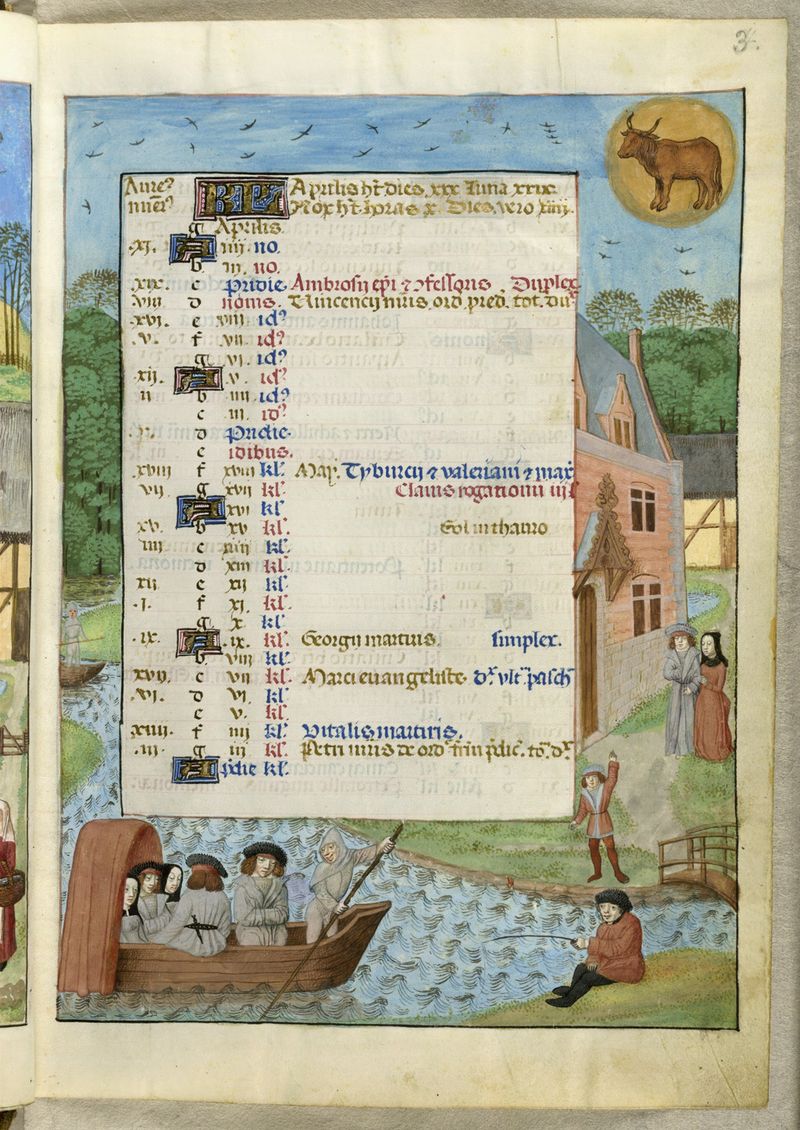 3.
Aure⁹ KL Aprilis ht dies xxx luna xxix.
nu̅er⁹ Nox ht horas x. Dies vero xiiij.
g Aprilis.
.xj. A iiij. no.
b iij. no.
.xix. c Pridie Ambrosij ep̅i ⁊ ↄfessoris Duplex
viij d nonis. Vincencij m̅ris. ord. pred. tot. du
.xvi. e viij id⁹
.v. f vij. id⁹
g vj. id⁹
.xij. A .v. id⁹
ij b iiij id⁹
c iij. id⁹
.x. d Pridie.
e idibus.
xviij f xviij kl⁹. May. Tyburcij ⁊ valeriani ⁊ max̅
vij. g xvij kl⁹. Clauis rogationu̅
A xvj kl⁹
xv. b xv kl⁹. Sol in thauro
iiij c xiiij kl⁹.
d xiij kl⁹.
xij e xij kl⁹.
.j. f xj. kl⁹.
g x. kl⁹
.ix. A .ix. kl⁹. Georgij martiris. simplex.
b. viij kl⁹.
xvij. c vij kl⁹. Marci euangeliste. d⁹. vlt⁹ pasch⁹
.vj. d vj. kl⁹
e v. kl⁹.
xiiij. f iiij kl⁹ Vitalis martiris.
.iij. g iij kl⁹. Petri m̅ris de ord. fr̅m p̅dic⁹. to⁹. d⁹.
A p̅die kl⁹.